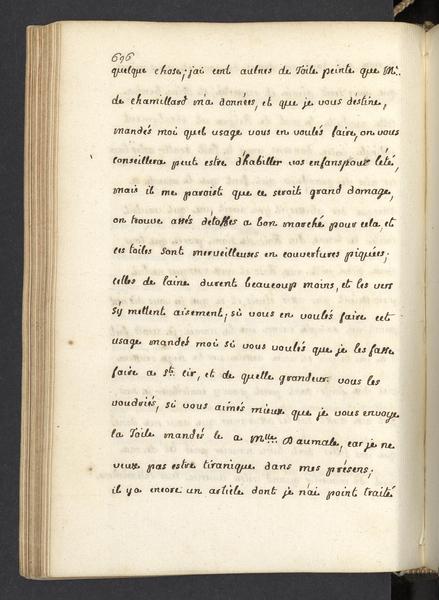 696
quelque chose; j'ai cent aulnes de Toile peinte que Mr.
de chamillard m'a données, et que je vous destine,
mandés moi quel usage vous en voulés faire, on vous
conseillera peut estre d'habiller vos enfans pour l'été,
mais il me paroist que ce seroit grand domage,
on trouve assés détoffes a bon marché pour cela, et
ces toiles sont merveilleuses en couvertures piquées;
celles de laine durent beaucoup moins, et les vers
s'y mettent aisement; si vous en voulés faire cet
usage mandés moi si vous voulés que je les fasse
faire a st. cir, et de quelle grandeur vous les
voudriés, si vous aimés mieux que je vous envoye
la Toile mandés le a Mlle. Daumale, car je ne
veux pas estre tiranique dans mes présens;
il y a encore un article dont je n'ai point traité